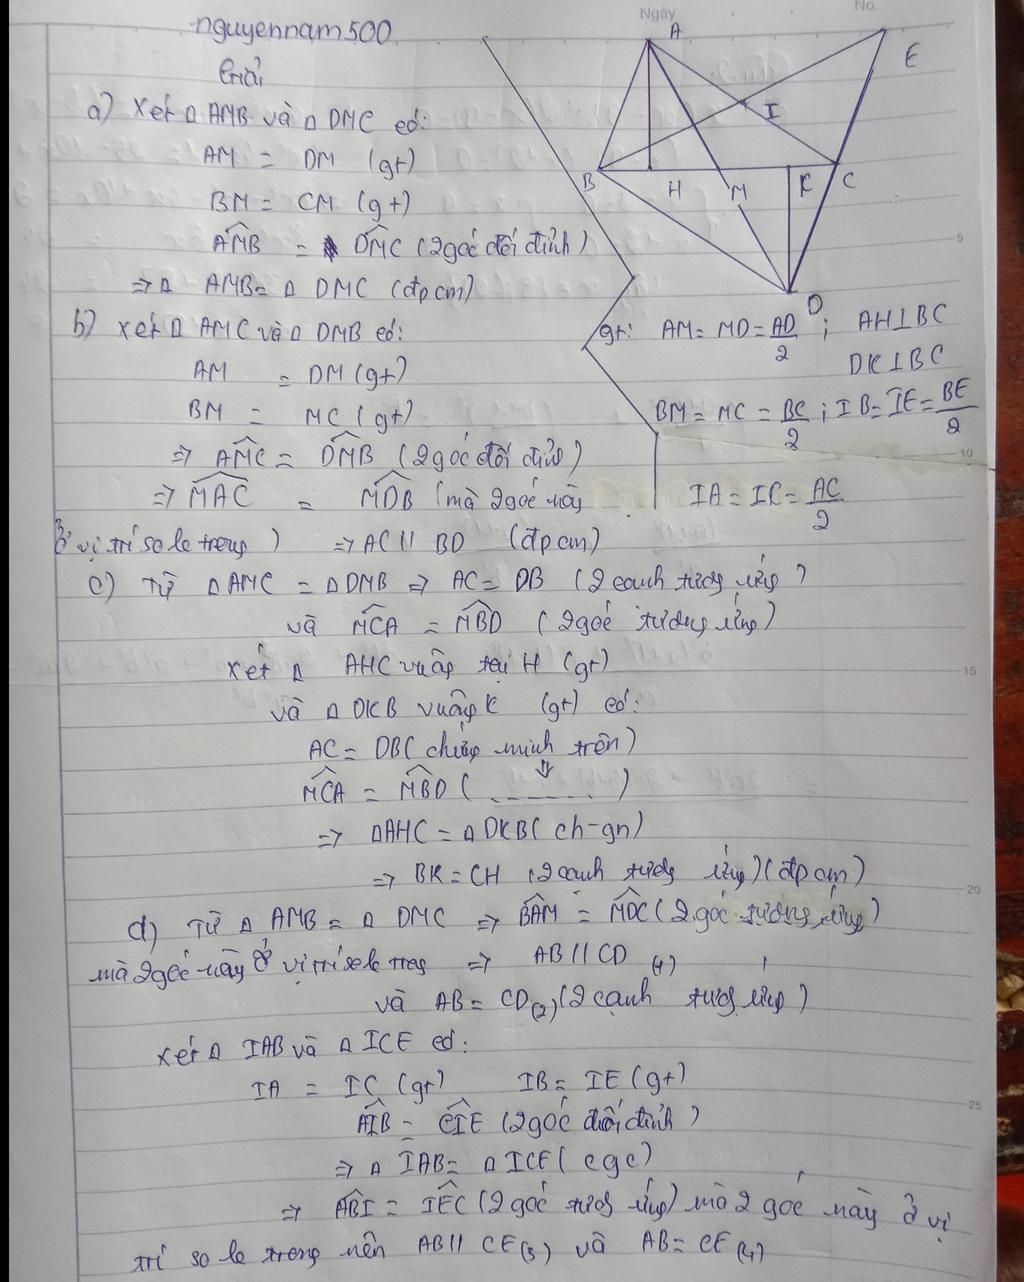 Ngày No.
nguyennam500
Giải
a) Xét Δ AMB và Δ DMC có:
AM = DM (gt)
BM = CM (gt)
AMB = DMC (2 góc đối đỉnh)
=> Δ AMB = Δ DMC (đpcm)
b) Xét Δ AMC và Δ DMB có:
AM = DM (gt)
BM = MC (gt)
=> AMC = DMB (2 góc đối đỉnh)
=> MAC = MDB (mà 2 góc này
ở vị trí so le trong) => AC // BD (đpcm)
c) Từ Δ AMC = Δ DMB => AC = DB (2 cạnh tương ứng)
và MCA = MBD (2 góc tương ứng)
Xét Δ AHC vuông tại H (gt)
và Δ DKB vuông K (gt) có:
AC = DB (chứng minh trên)
MCA = MBD ( ........ )
=> ΔAHC = Δ DKB (ch-gn)
=> BK = CH (2 cạnh tương ứng) (đpcm)
d) Từ Δ AMB = Δ DMC => BAM = MDC (2 góc tương ứng)
mà 2 góc này ở vị trí so le trong => AB // CD (1)
và AB = CD (2) (2 cạnh tương ứng)
Xét Δ IAB và Δ ICE có:
IA = IC (gt) IB = IE (gt)
AIB = CIE (2 góc đối đỉnh)
=> Δ IAB = Δ ICE (cgc)
=> ABI = IEC (2 góc tương ứng) mà 2 góc này ở vị
trí so le trong nên AB // CE (3) và AB = CE (4)
A
E
I
B H M K C
D
gt: AM = MD = AD/2 ; AH⊥BC
DK⊥BC
BM = MC = BC/2 ; IB = IE = BE/2
IA = IC = AC/2
5
10
15
20
25